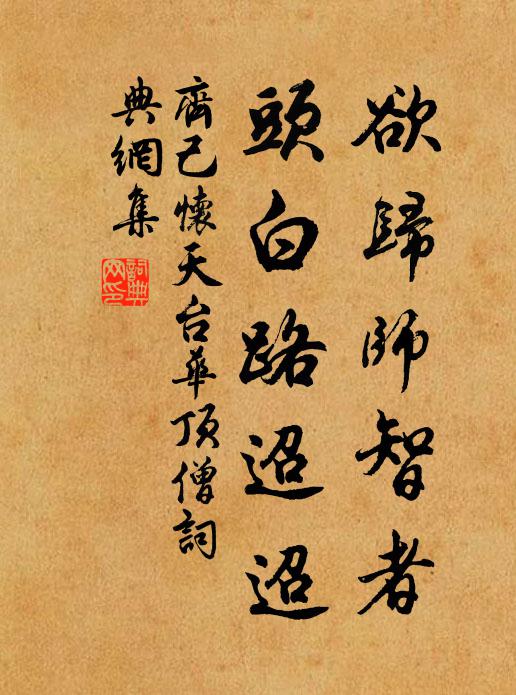 欲歸師智者
頭白路迢迢
齊己懷天台華頂僧詞
典網集
詞典
网印